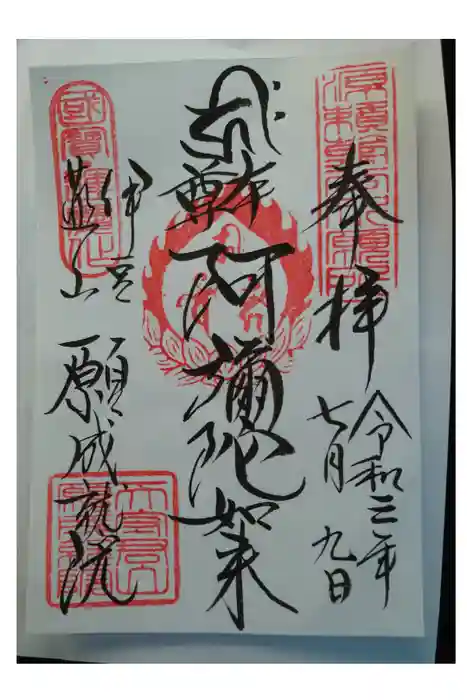 奉拝
令和三年
七月九日
本尊
阿彌陀如来
伊豆
韮山
願成就院